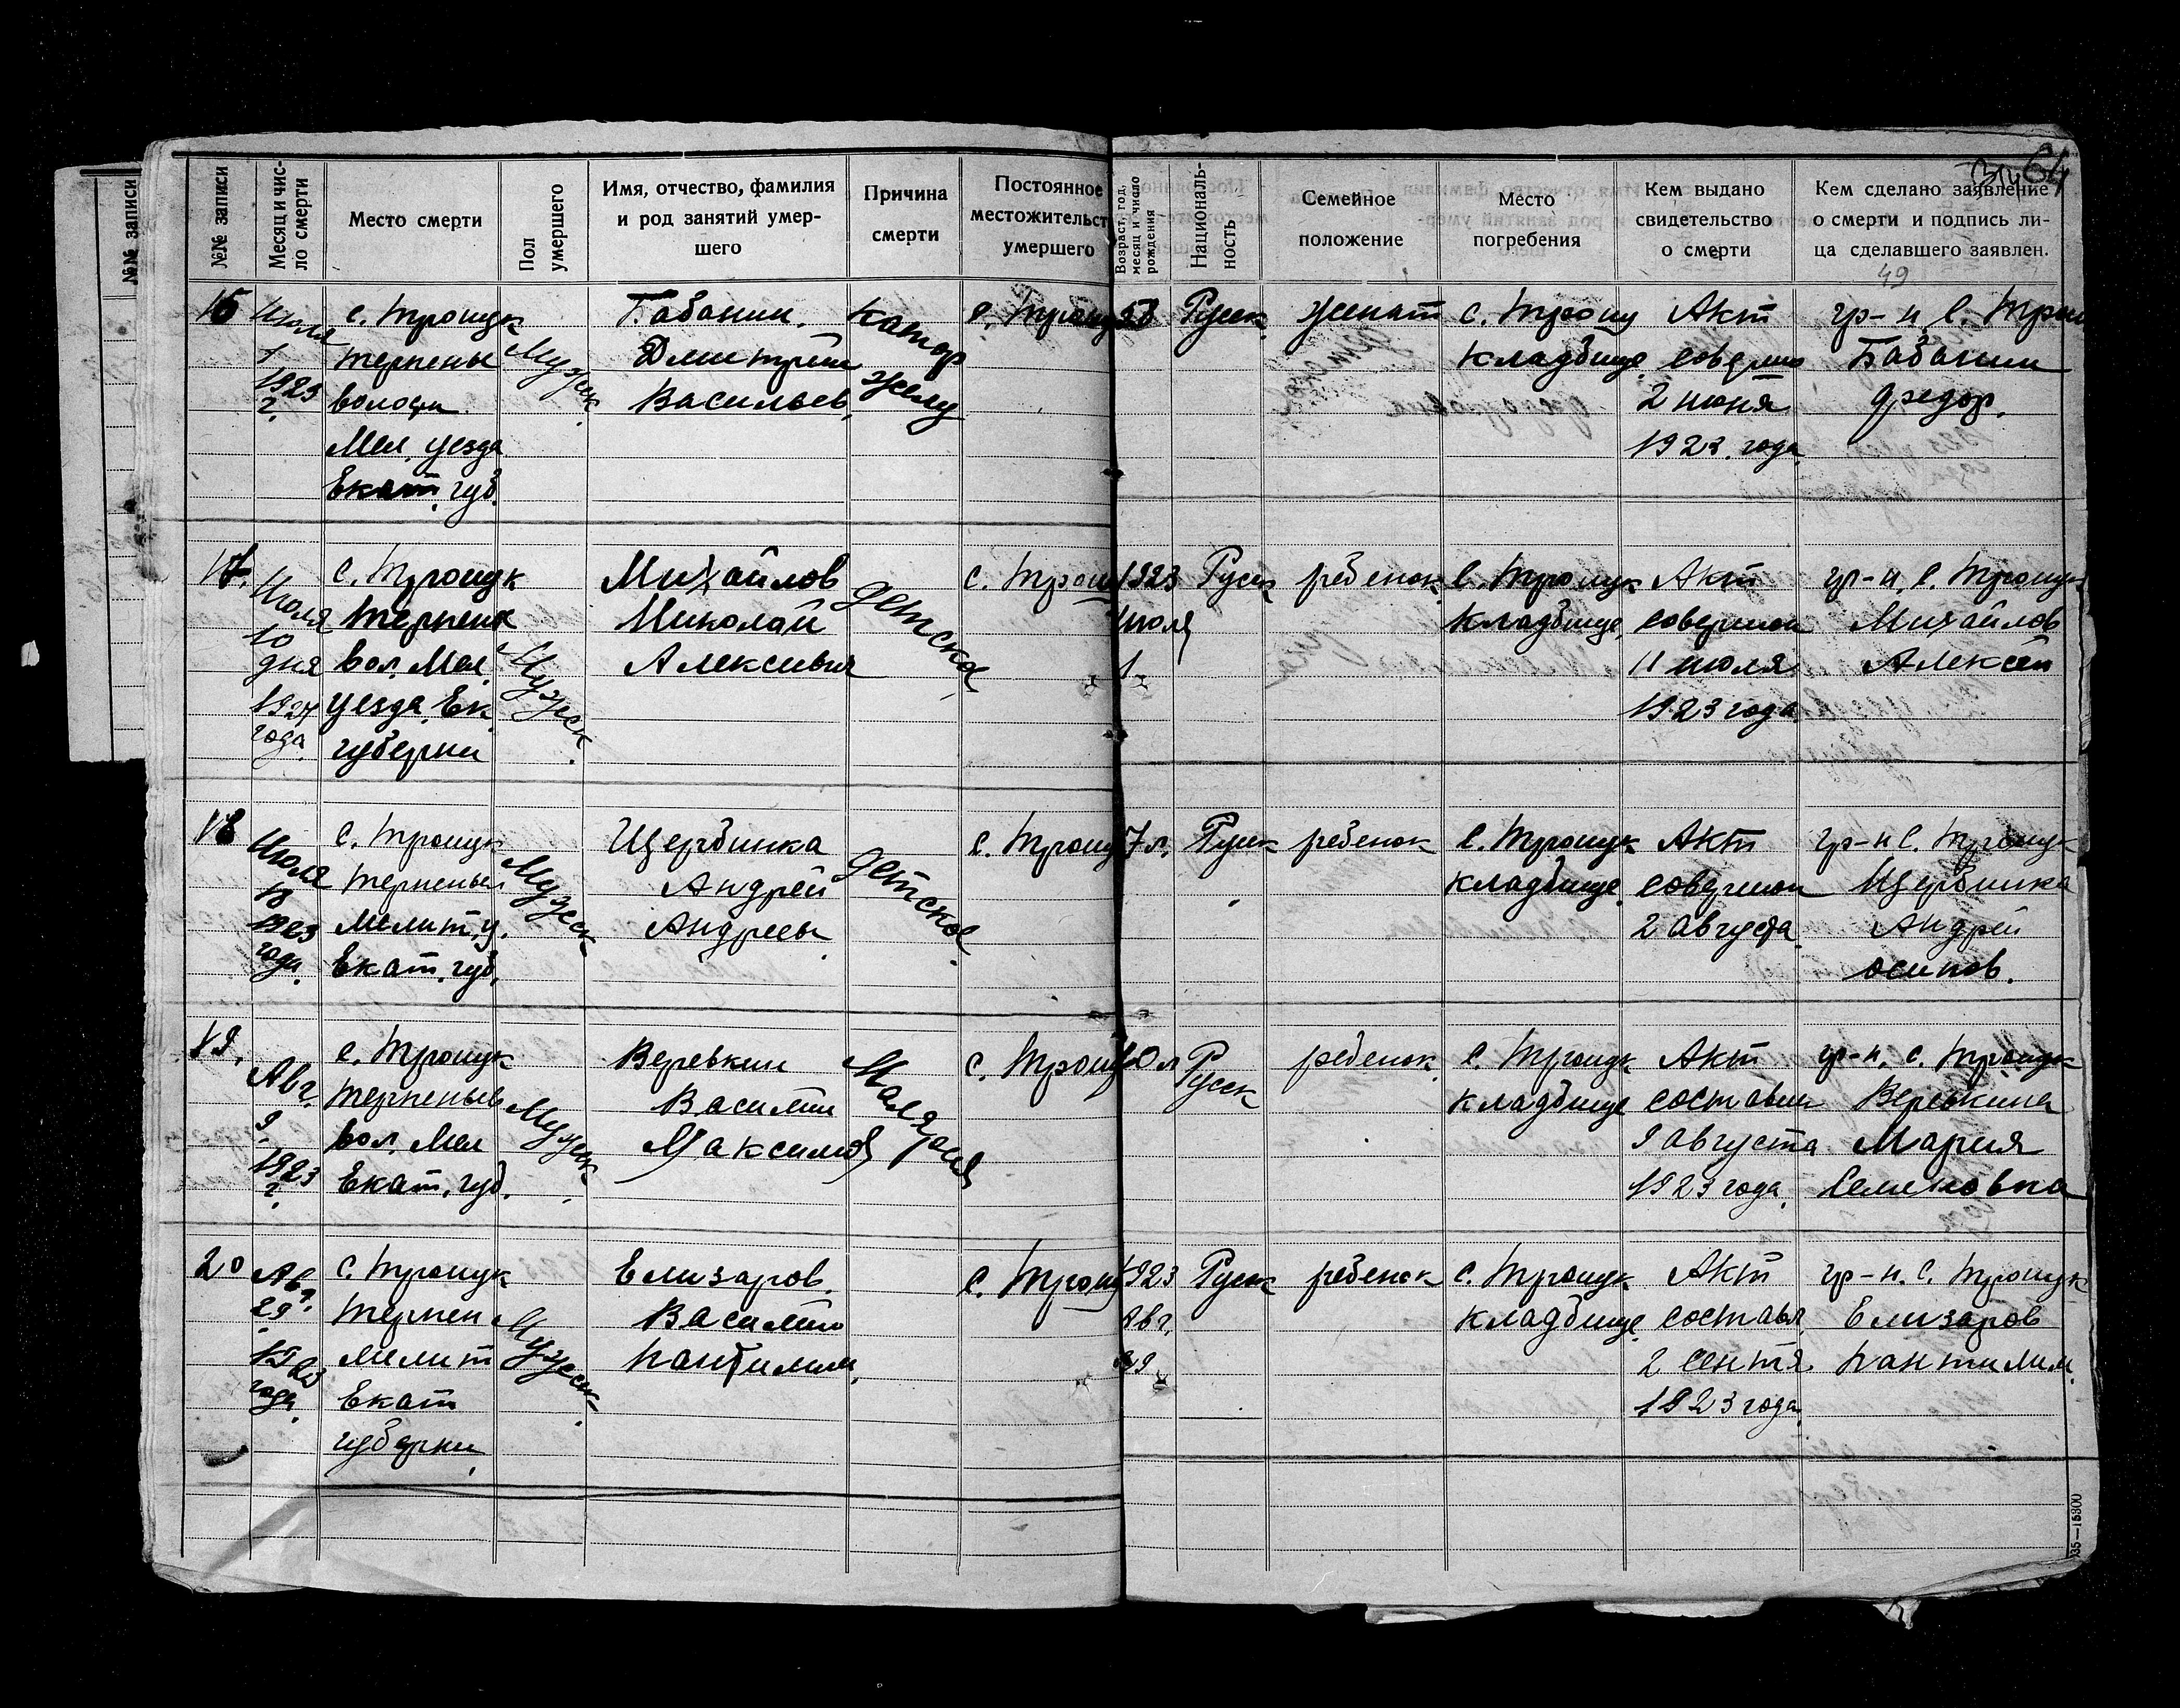 №№ записи
№№ записи
Месяц и чис-
ло смерти
Место смерти
Пол
умершего
Имя, отчество, фамилия
и род занятий умер-
шего
Причина
смерти
Постоянное
местожительст
умершего
Возраст, год,
месяц и число
рождения
Националь-
ность
Семейное
положение
Место
погребения
Кем выдано
свидетельство
о смерти
Кем сделано заявление
о смерти и подпись ли-
ца сделавшего заявлен.
64
49
16
Июля
1
1923
г.
с. Троицк
терпены
волости
Мел. уезда
Екат. губ.
Мужск.
Бабанин.
Дмитрий
Васильев.
Катар
желу
с. Троиц
58
Русск
женат
с. Троиц
кладбище
Акт
2 июня
1923. года.
гр-н. с. Трои
Бабанин
Федор.
17.
Июля
10
дня
года.
с. Троицк
терпен
вол. Мел.
уезда. Ек.
губерни
Мужск.
Михайлов
Николай
Алексивия
детска
с. Троиц
1923
июля
1.
Русск
ребенок
с. Троицк
кладбище
Акт
совершон
11 июля
1923 года.
гр-н. с. Троицк
Михайлов
Алексей
18
Июля
18
1923
года.
с. Троицк
терпеньев
Мелит. у.
Екат. губ.
Мужск
Щербинка
Андрей
Андреев.
детска
с. Троиц
7 л.
Русск
ребенок
с. Троицк
кладбище
Акт
совершон
2 августа.
гр-н с. Троицк
Щербинка
Андрей
осипов.
19.
Авг.
9.
1923
г.
с. Троицк
терпеньев
вол. Мел
Екат. губ.
Мужск.
Веревкин
Василий
Максимов
Малярия
с. Троиц
10 л
Русск
ребенок.
с. Троицк
кладбище
Акт
составлен
9 августа
1923 года.
гр-н. с. Троицк
Веревкина
Мария
Семеновна
20
Авг.
29
1923
года.
с. Троицк
терпен
мелит
Екат
губерни
Мужск.
Елизаров.
Василий
пантилим.
с. Троиц
1923
Авг.
29
Русск
ребенок
с. Троицк
кладбище.
Акт
составл.
2 сентя.
1923 года.
гр-н. с. Троицк
Елизаров
пантилим.
35—15800